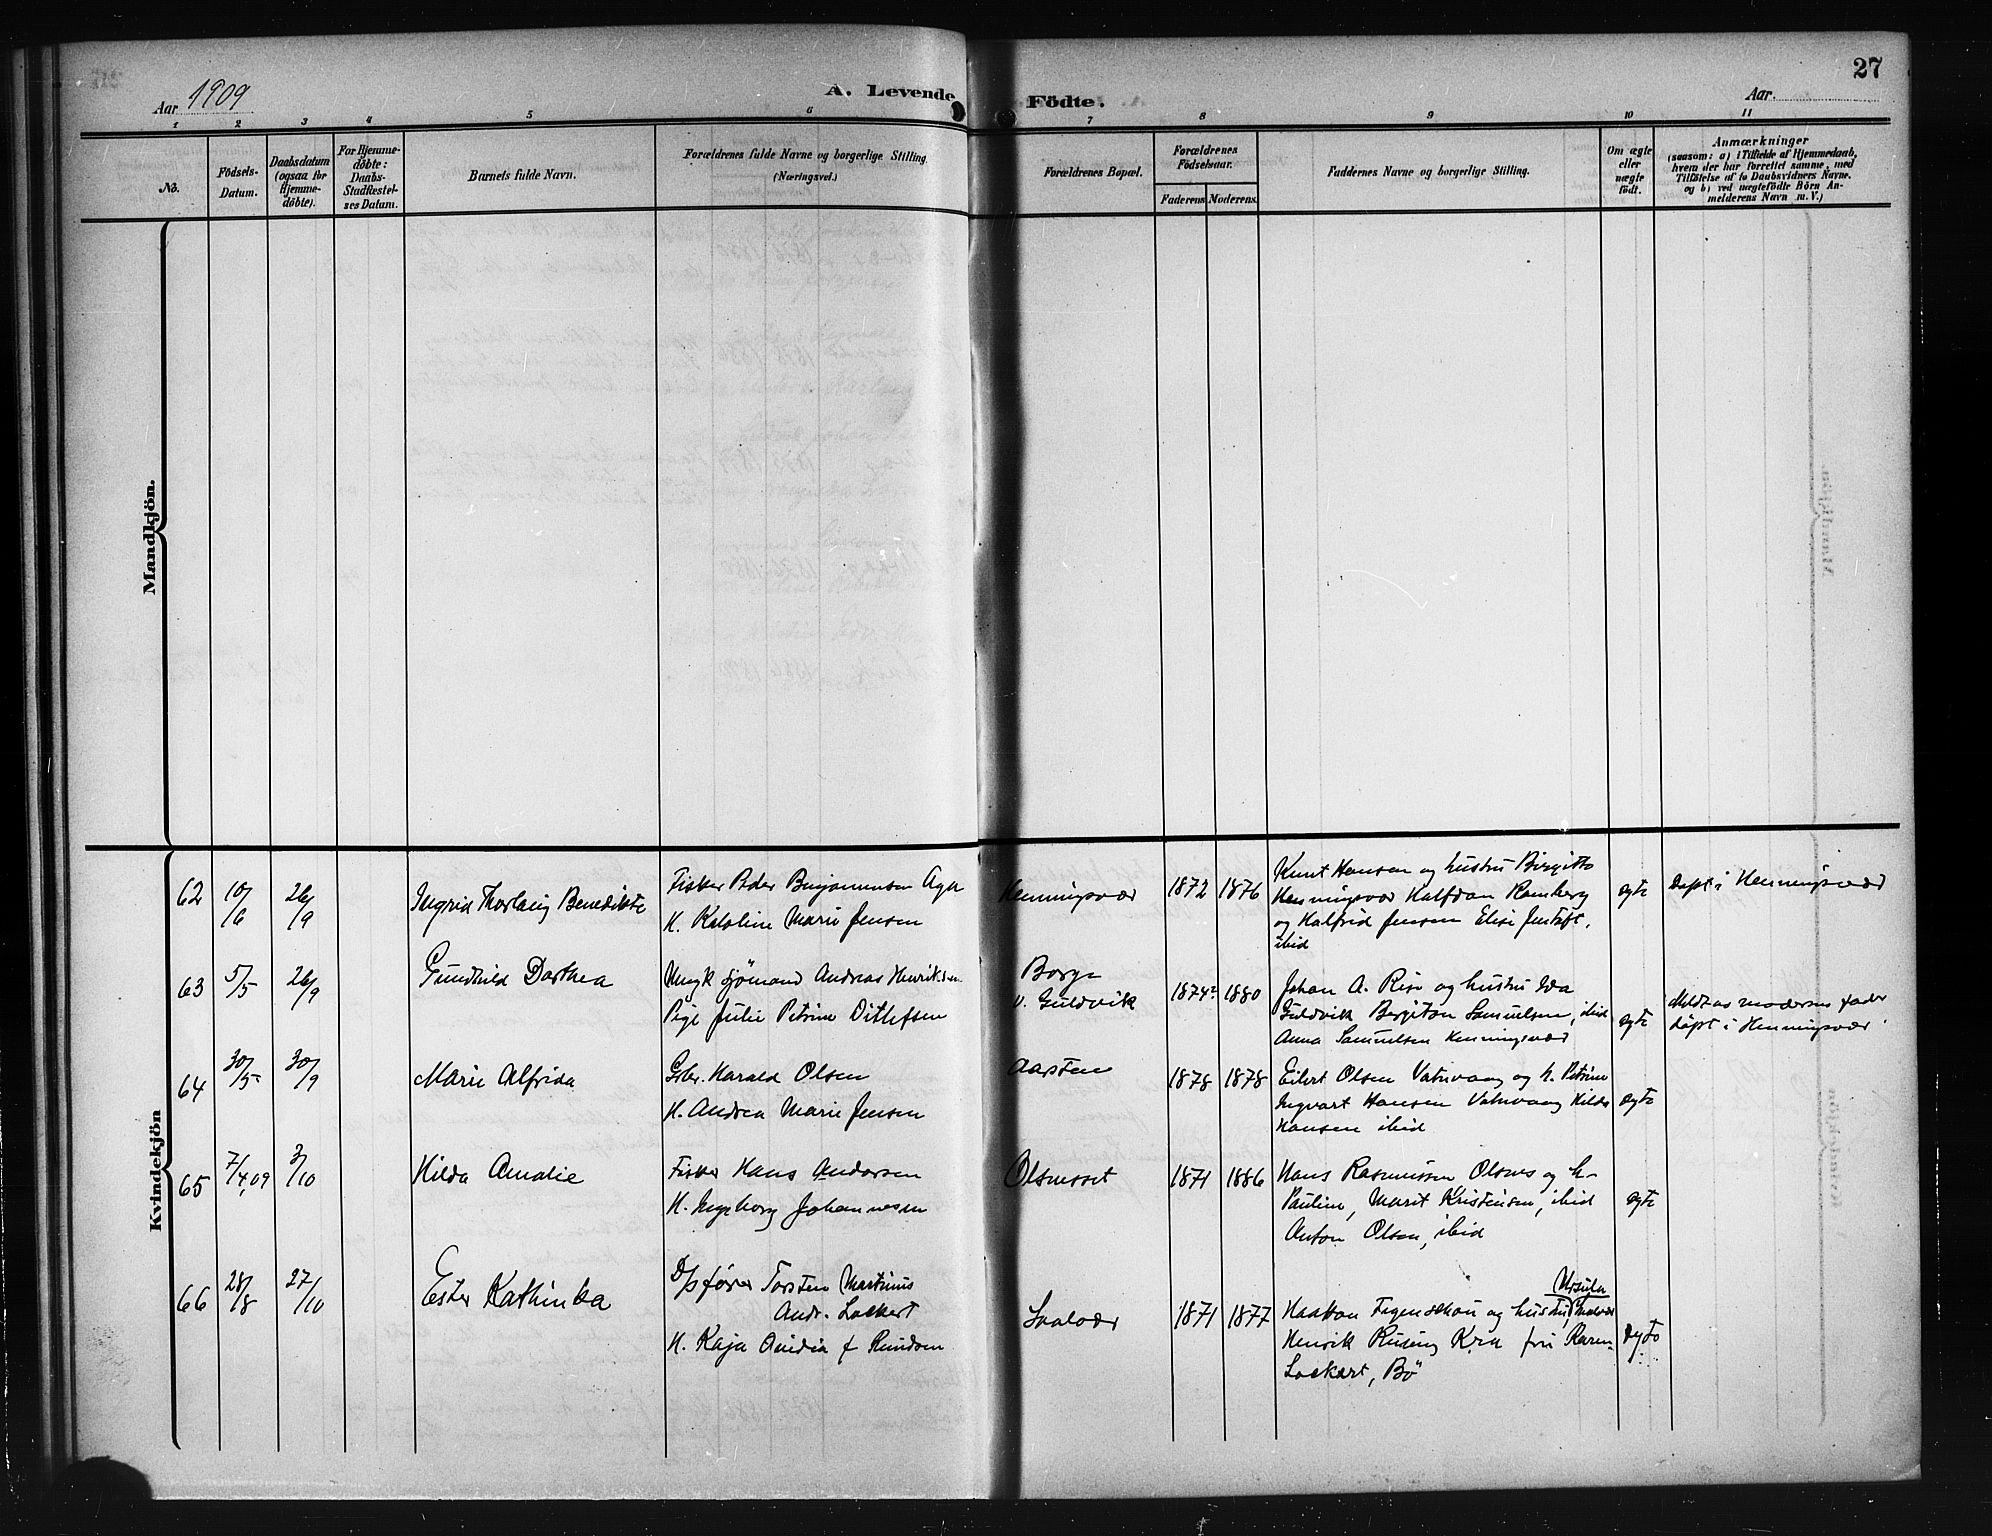 27
Aar 1909
A. Levende
Födte.
Aar.
1 2 3 4 5 6 7 8 9 10 11
No.
Födsels-
Datum.
Daabsdatum
(ogsaa for
Hjemme-
döbte).
For Hjemme-
döbte:
Daabs-
Stadfæstel-
ses Datum.
Barnets fulde Navn.
Forældrenes fulde Navne og borgerlige Stilling
(Næringsvei.)
Forældrenes Bopæl.
Forældrenes
Födselsaar.
Faderens Moderens.
Faddernes Navne og borgerlige Stilling.
Om ægte
eller
uægte
födt.
Anmærkninger
(saasom: a) i Tilfælde af Hjemmedaab,
hvem der har forrettet samme, med
Tilföielse af to Daabsvidners Navne,
og b) ved uægtefödte Börn An-
melderens Navn m. V.)
Mandkjön.
Kvindekjön
62 10/6 26/9 Ingrid Thorlaug Benedikte
Fisker Peder Benjaminsen Aga
H. Kataline Marie Jensen
Henningsvær 1872 1876
Knut Hansen og hustru Birgitte
Henningsvær Halfdan Ramberg
og Halfrid Jensen Elise
ibid
egte
Døpt i Henningsvær
63 5/5 26/9 Gundhild Dorthea
Ungk sjömand Andreas Henriksen
Pige Julie Petrine Ditlefsen
Borge
v. Guldvik
1874? 1880
Johan A. Rise og hustru Ida
Guldvik Bergiton Samuelsen, ibid
Anna Samuelsen Henningsvær
egte
Meldt as moderens fader
døpt i Henningsvær
64 30/5 30/9 Marie Alfrida
Gbr. Harald Olsen
H. Andrea Marie Jensen
Aasten 1878 1878
Eilert Olsen Vatnvaag og h. Petrine
Ingvart Hansen Vatnvaag Hilda
Hansen ibid
egte
65 7/4,09 3/10 Hilda Amalie
Fisker Hans Andersen
H. Ingeborg Johannesen
Olsnesset 1871 1886
Hans Rasmussen Olsnes og h-
Pauline, Marit Kristensen, ibid
Anton Olsen, ibid
egte
66 28/8 27/10 Ester Kathinka
D/pfører Torsten Martinus
Andr. Lockert
H. Kaja Ovidia f Knudsen
Svolvær 1871 1877
Ursula
Haakon Fygenschou og hustru, Svolvær
Henrik Rusing Kra fru Karen
Lockert, Bö
egte